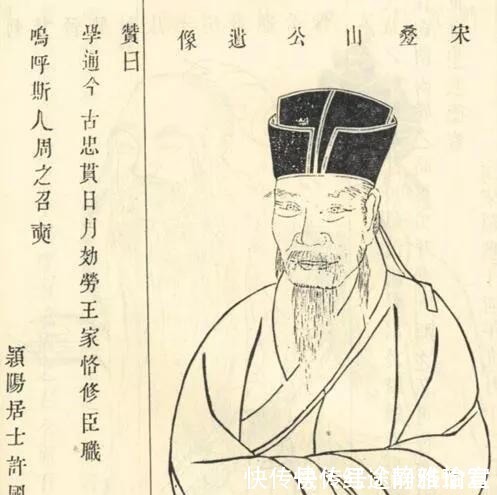 宋疊山公遺像
贊曰
學通今古忠貫日月効勞王家恪修臣職
嗚呼斯人周之召奭
潁陽居士許國